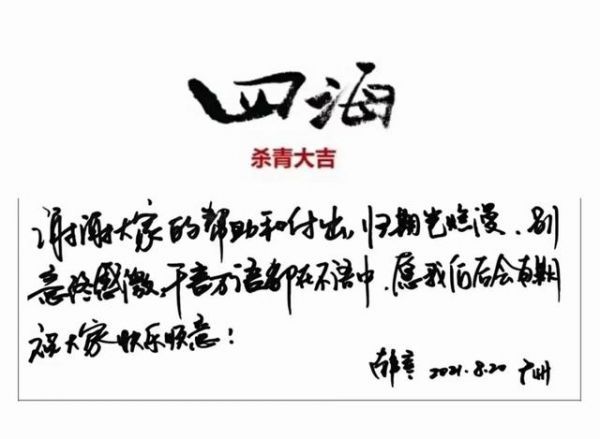 四海
杀青大吉
谢谢大家的帮助和付出,归期岂烂漫,别
意终感激,千言万语都在不语中,愿我们后会有期
祝大家快乐顺意!
韩寒 2021.8.20 广州